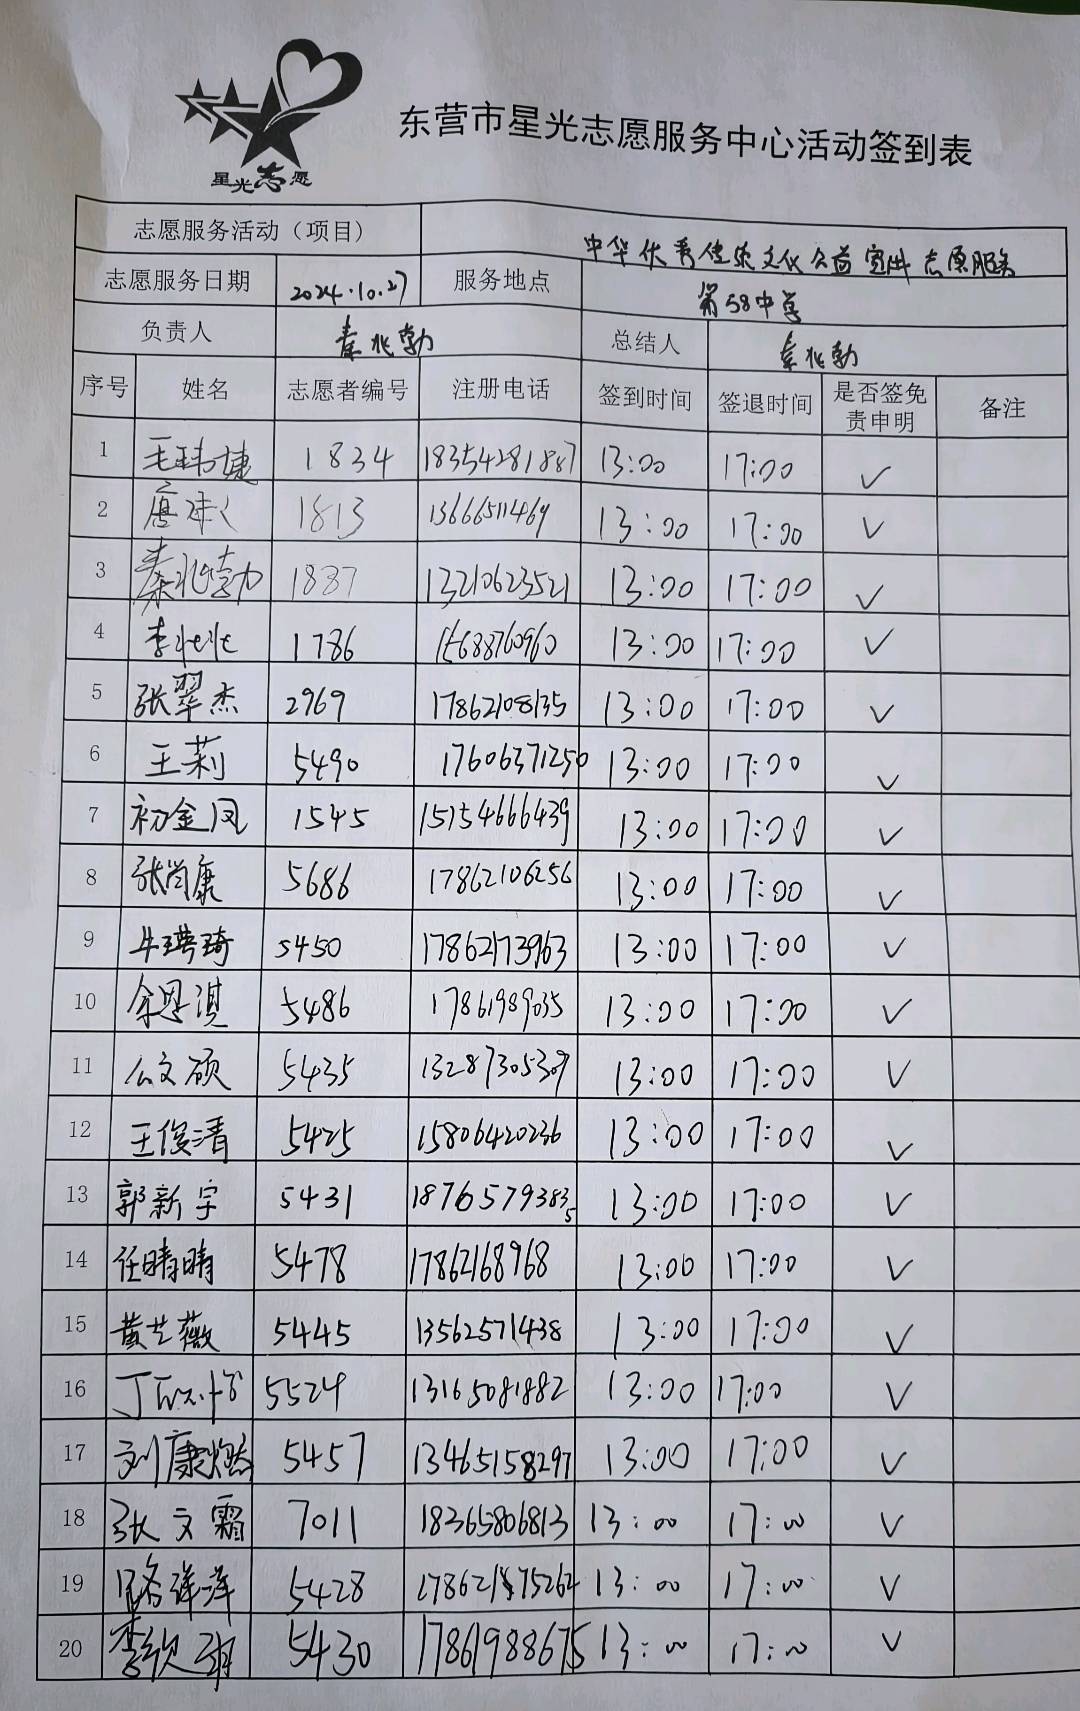 星光志愿
东营市星光志愿服务中心活动签到表
志愿服务活动（项目） 中华优秀传统文化公益宣讲志愿服务
志愿服务日期 2024.10.27 服务地点 第58中学
负责人 秦兆勃 总结人 秦兆勃
序号 姓名 志愿者编号 注册电话 签到时间 签退时间 是否签免责申明 备注
1 王玮婕 1834 18354281887 13:00 17:00 ✓
2 唐 1813 13666511469 13:00 17:00 ✓
3 秦兆勃 1837 13210623521 13:00 17:00 ✓
4 李壮壮 1786 15688760960 13:00 17:00 ✓
5 张翠杰 2969 17862108135 13:00 17:00 ✓
6 王莉 5490 17606371250 13:00 17:00 ✓
7 初金凤 1545 15154666439 13:00 17:00 ✓
8 张尚康 5686 17862106256 13:00 17:00 ✓
9 牛琦 5450 17862173963 13:00 17:00 ✓
10 余恩淇 5486 17861989035 13:00 17:00 ✓
11 公文硕 5435 13287305309 13:00 17:00 ✓
12 王俊清 5425 15806420236 13:00 17:00 ✓
13 郭新宇 5431 18765793835 13:00 17:00 ✓
14 任晴晴 5478 17862168968 13:00 17:00 ✓
15 黄芝薇 5445 13562571438 13:00 17:00 ✓
16 丁 5524 13165081882 13:00 17:00 ✓
17 刘康燃 5457 13465158297 13:00 17:00 ✓
18 张文霜 7011 18365806813 13:00 17:00 ✓
19 路洋洋 5428 13:00 17:00 ✓
20 李欣玥 5430 17861988675 13:00 17:00 ✓